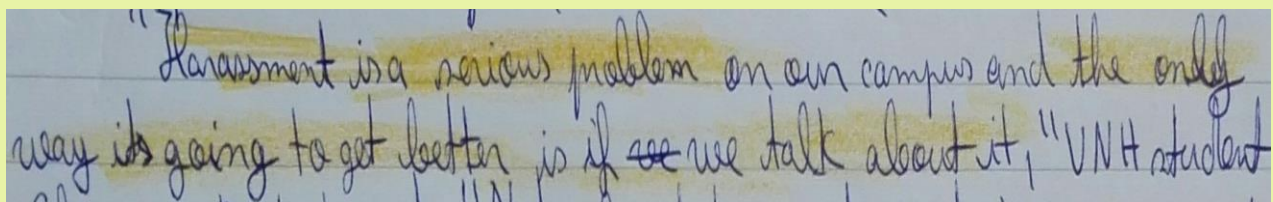 "Harassment is a serious problem on our campus and the only
way its going to get better is if we we talk about it, "VNH student